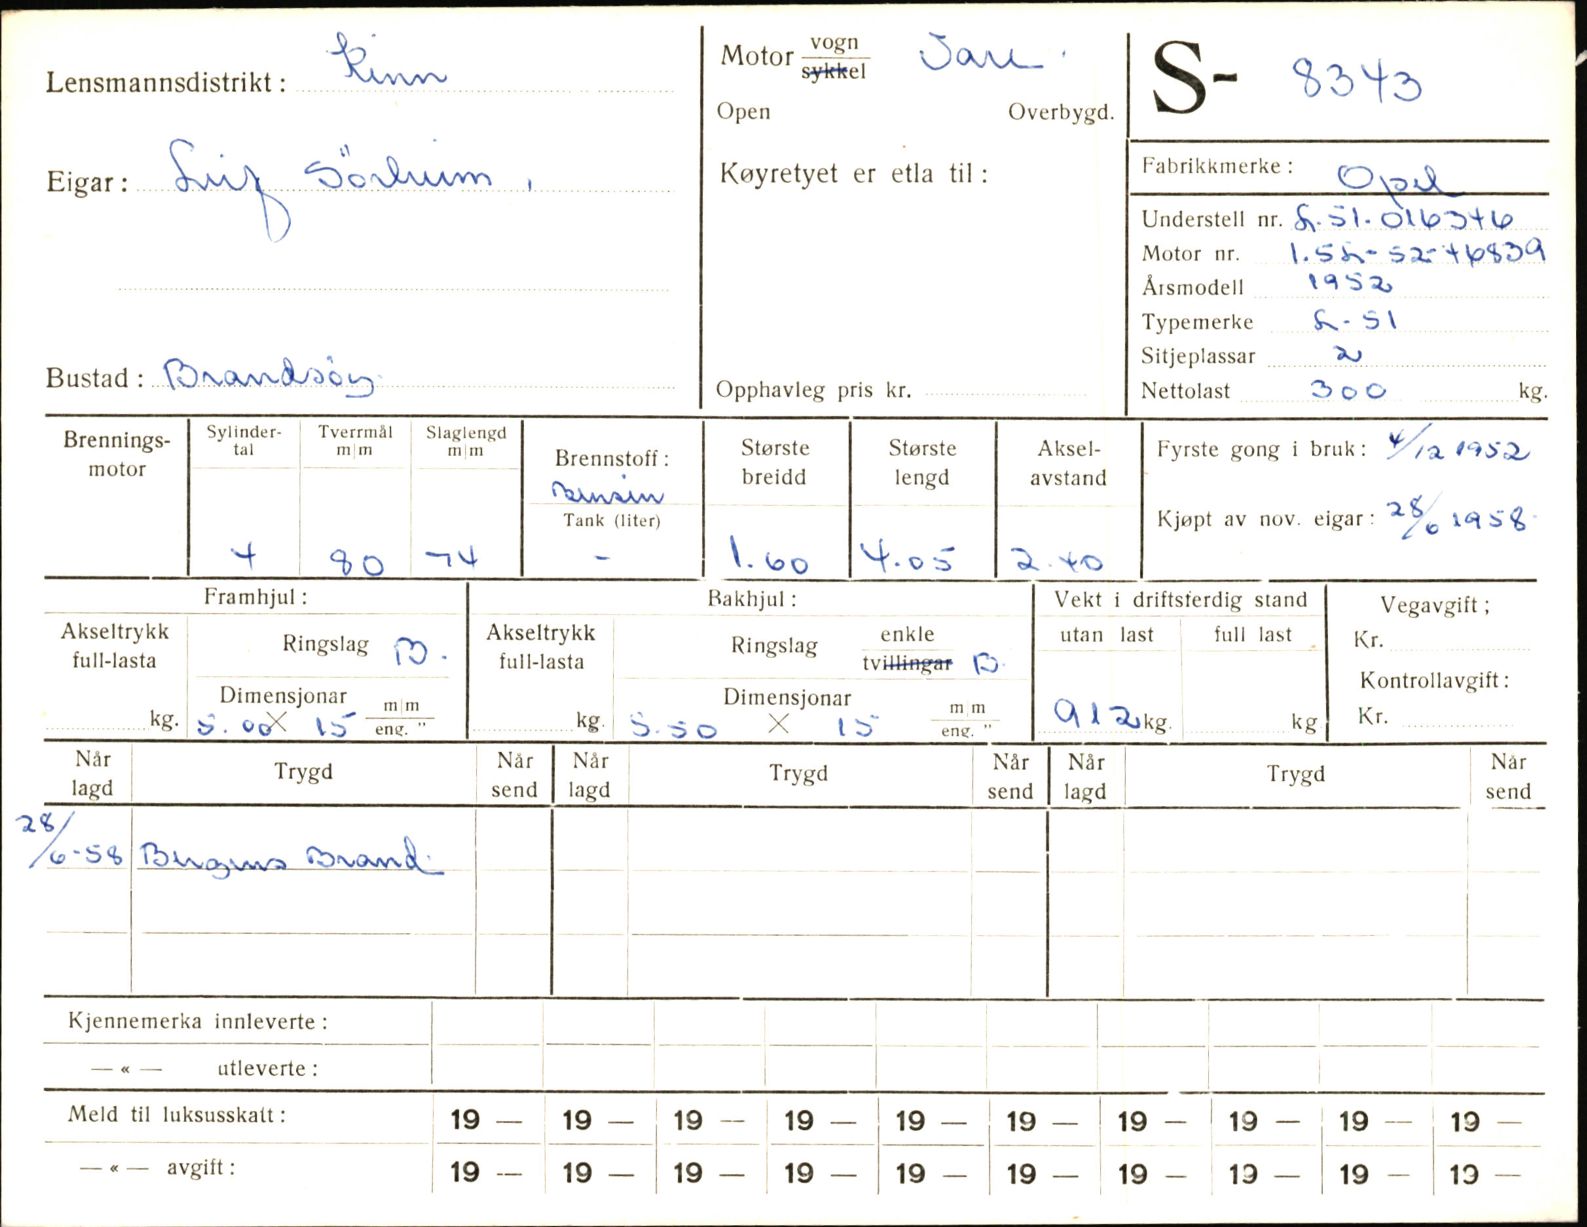 Lensmannsdistrikt: Kinn
Motor vogn
sykkel
Open Overbygd.
S- 8343
Eigar: Leif Sörheim,
Køyretyet er etla til:
Fabrikkmerke: Opel
Understell nr. L.51.016346
Motor nr. 1.5L-52-46839
Årsmodell 1952
Typemerke L-51
Sitjeplassar 2
Bustad: Brandsöy
Opphavleg pris kr.
Nettolast 300 kg.
Brennings-
motor
Sylinder-
tal
4
Tverrmål
m|m
80
Slaglengd
m|m
74
Brennstoff:
Bensin
Tank (liter)
-
Største
breidd
1.60
Største
lengd
4.05
Aksel-
avstand
2.40
Fyrste gong i bruk: 4/12 1952
Kjøpt av nov. eigar: 28/6 1958
Framhjul:
Akseltrykk
full-lasta
kg.
Ringslag B.
Dimensjonar
5.00 × 15 m|m
eng. "
Bakhjul:
Akseltrykk
full-lasta
kg.
Ringslag enkle
tvillingar B
Dimensjonar
5.50 × 15 m|m
eng. "
Vekt i driftsferdig stand
utan last
912 kg.
full last
kg
Vegavgift;
Kr.
Kontrollavgift:
Kr.
Når
lagd
Trygd
Når
send
Når
lagd
Trygd
Når
send
Når
lagd
Trygd
Når
send
28/6-58 Bergens Brand.
Kjennemerka innleverte:
— « — utleverte:
Meld til luksusskatt: 19 — 19 — 19 — 19 — 19 — 19 — 19 — 19 — 19 — 19 —
— « — avgift: 19 — 19 — 19 — 19 — 19 — 19 — 19 — 19 — 19 — 19 —